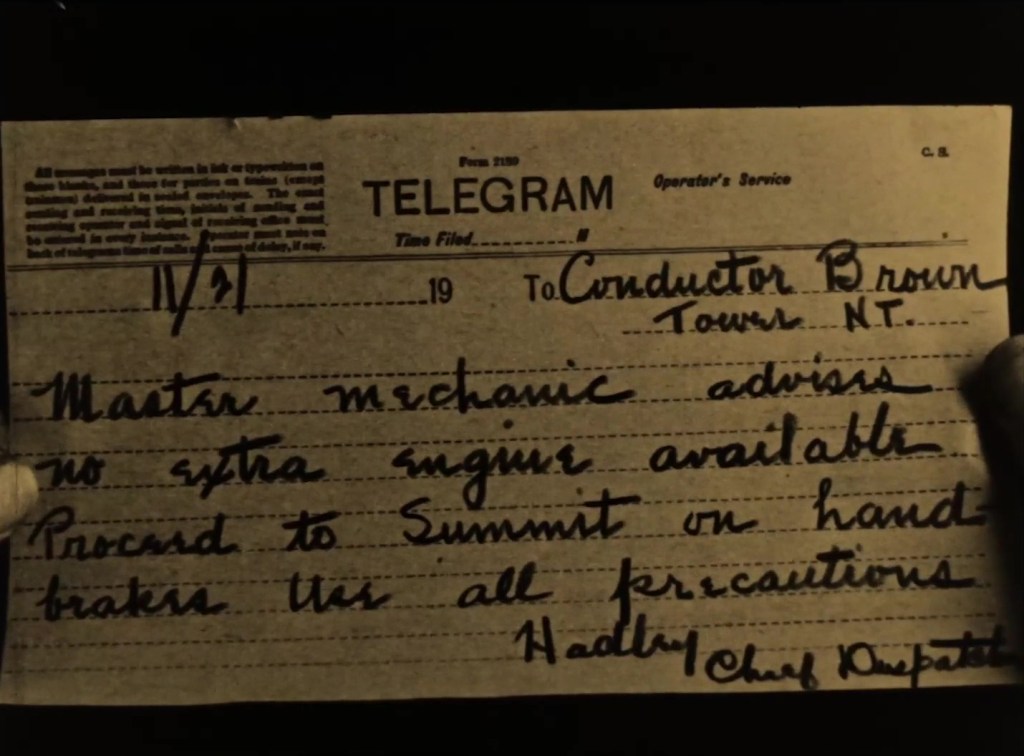 Form 2180
C. S.
All messages must be written in ink or typewritten on
these blanks, and those for parties on trains (except
trainmen) delivered in sealed envelopes. The exact
sending and receiving time, initials of sending and
receiving operator and signal of receiving office must
be entered in every instance. Operator must note on
back of telegrams time of calls and cause of delay, if any.
TELEGRAM
Operator's Service
Time Filed M
11/21 19 To Conductor Brown
Tower N.T.
Master mechanic advises
no extra engine available
Proceed to Summit on hand
brakes Use all precautions
Hadley Chief Despatch